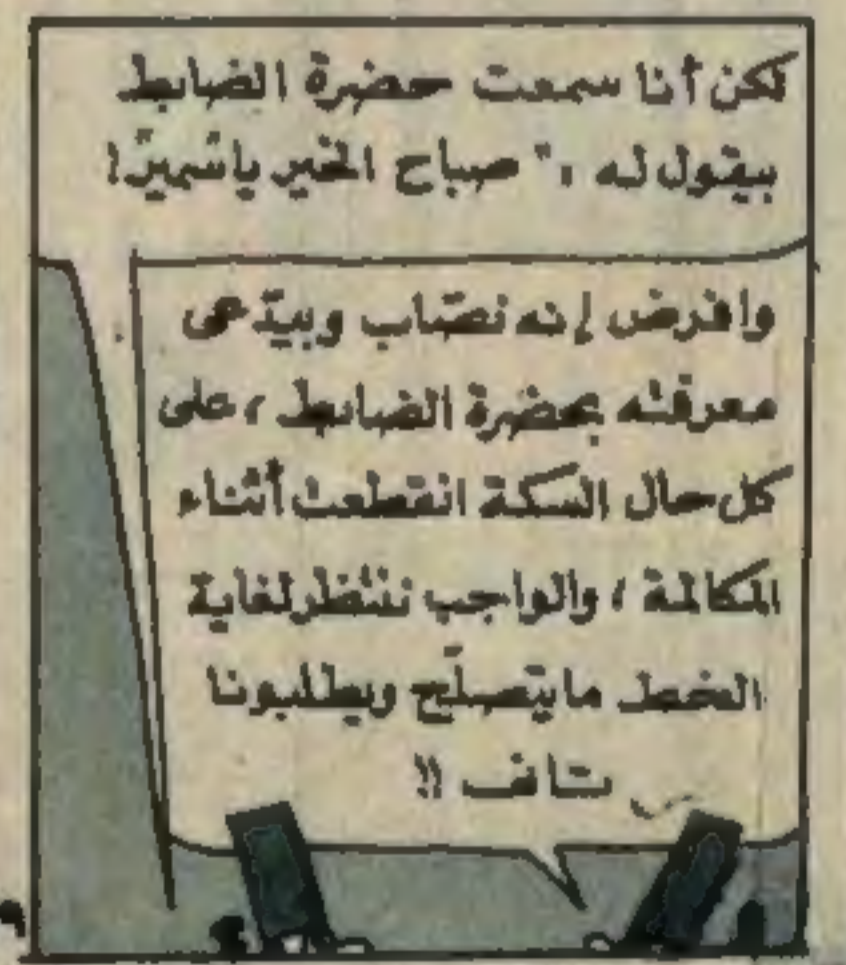 لكن أنا سمعت حضرة الضابط
بيقول له ، " صباح الخير ياشمير"!
وافرض إنه نصّاب وبيدّعى
معرفته بحضرة الضابط ، على
كل حال السكة انقطعت أثناء
المكالمة ، والواجب ننتظر لغاية
الخط ما يتصلّح ويطلبونا
تانى !!